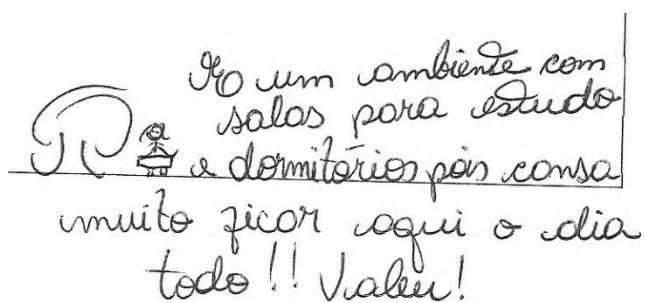 um ambiente com
salas para estudo
e dormitórios pois cansa
muito ficar aqui o dia
todo!! Valeu!